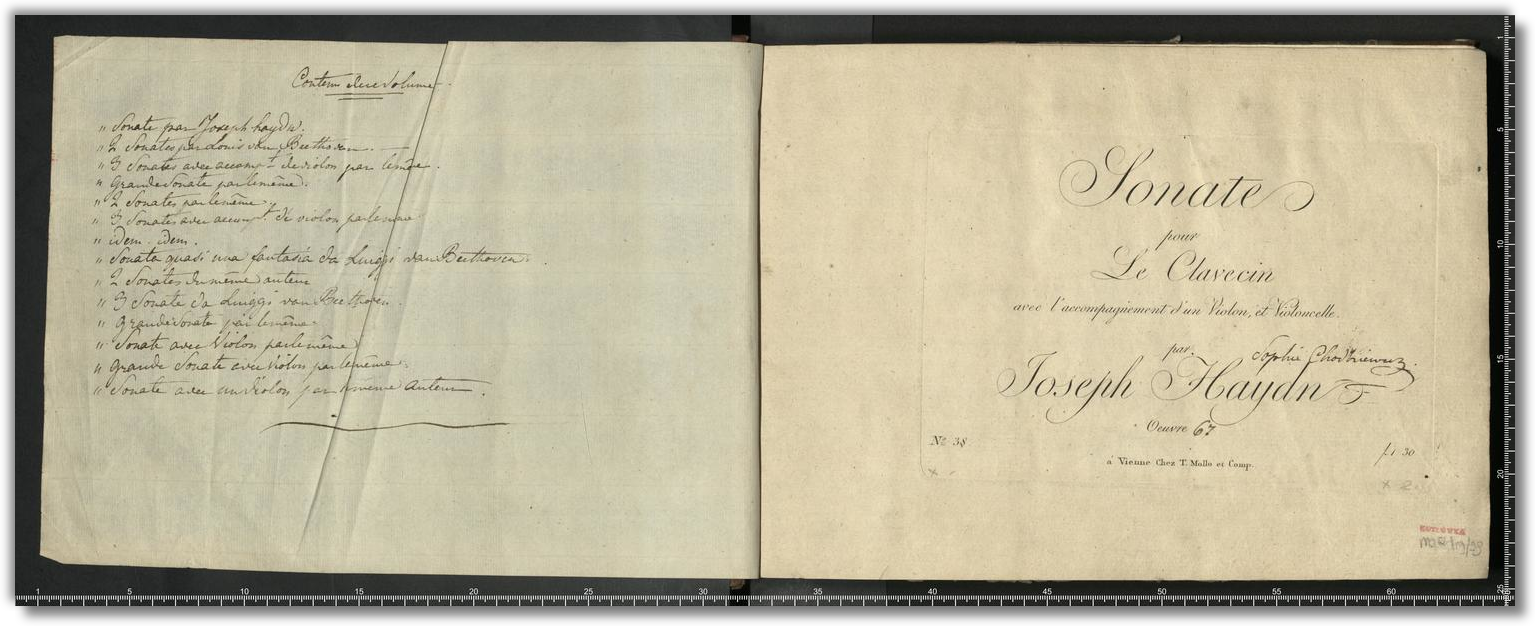 Contenu du ce Volume
" Sonate par Joseph haydn.
" 2 Sonates par Louis van Beethoven.
" 3 Sonates avec accompt. de violon par le même.
" grande Sonate par le même.
" 2 Sonates par le même.
" 3 Sonates avec accompt. de violon par le même
" idem - idem.
" Sonata quasi una fantasia da Luiggi van Beethoven.
" 2 Sonates du même auteur
" 3 Sonate da Luiggi van Beethoven.
" grande Sonate par le même
" Sonate avec Violon par le même
" grande Sonate avec violon par le même.
" Sonate avec un violon par le même auteur.
Sonate
pour
Le Clavecin
avec l'accompagnement d'un Violon, et Violoncelle.
par
Sophie
Joseph Haydn
Oeuvre 67
No. 38
f 1 30
à Vienne Chez T. Mollo et Comp.